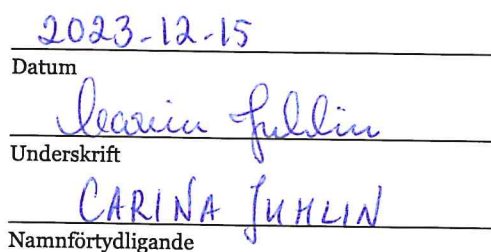 2023-12-15
Datum
Carina Juhlin
Underskrift
CARINA JUHLIN
Namnförtydligande